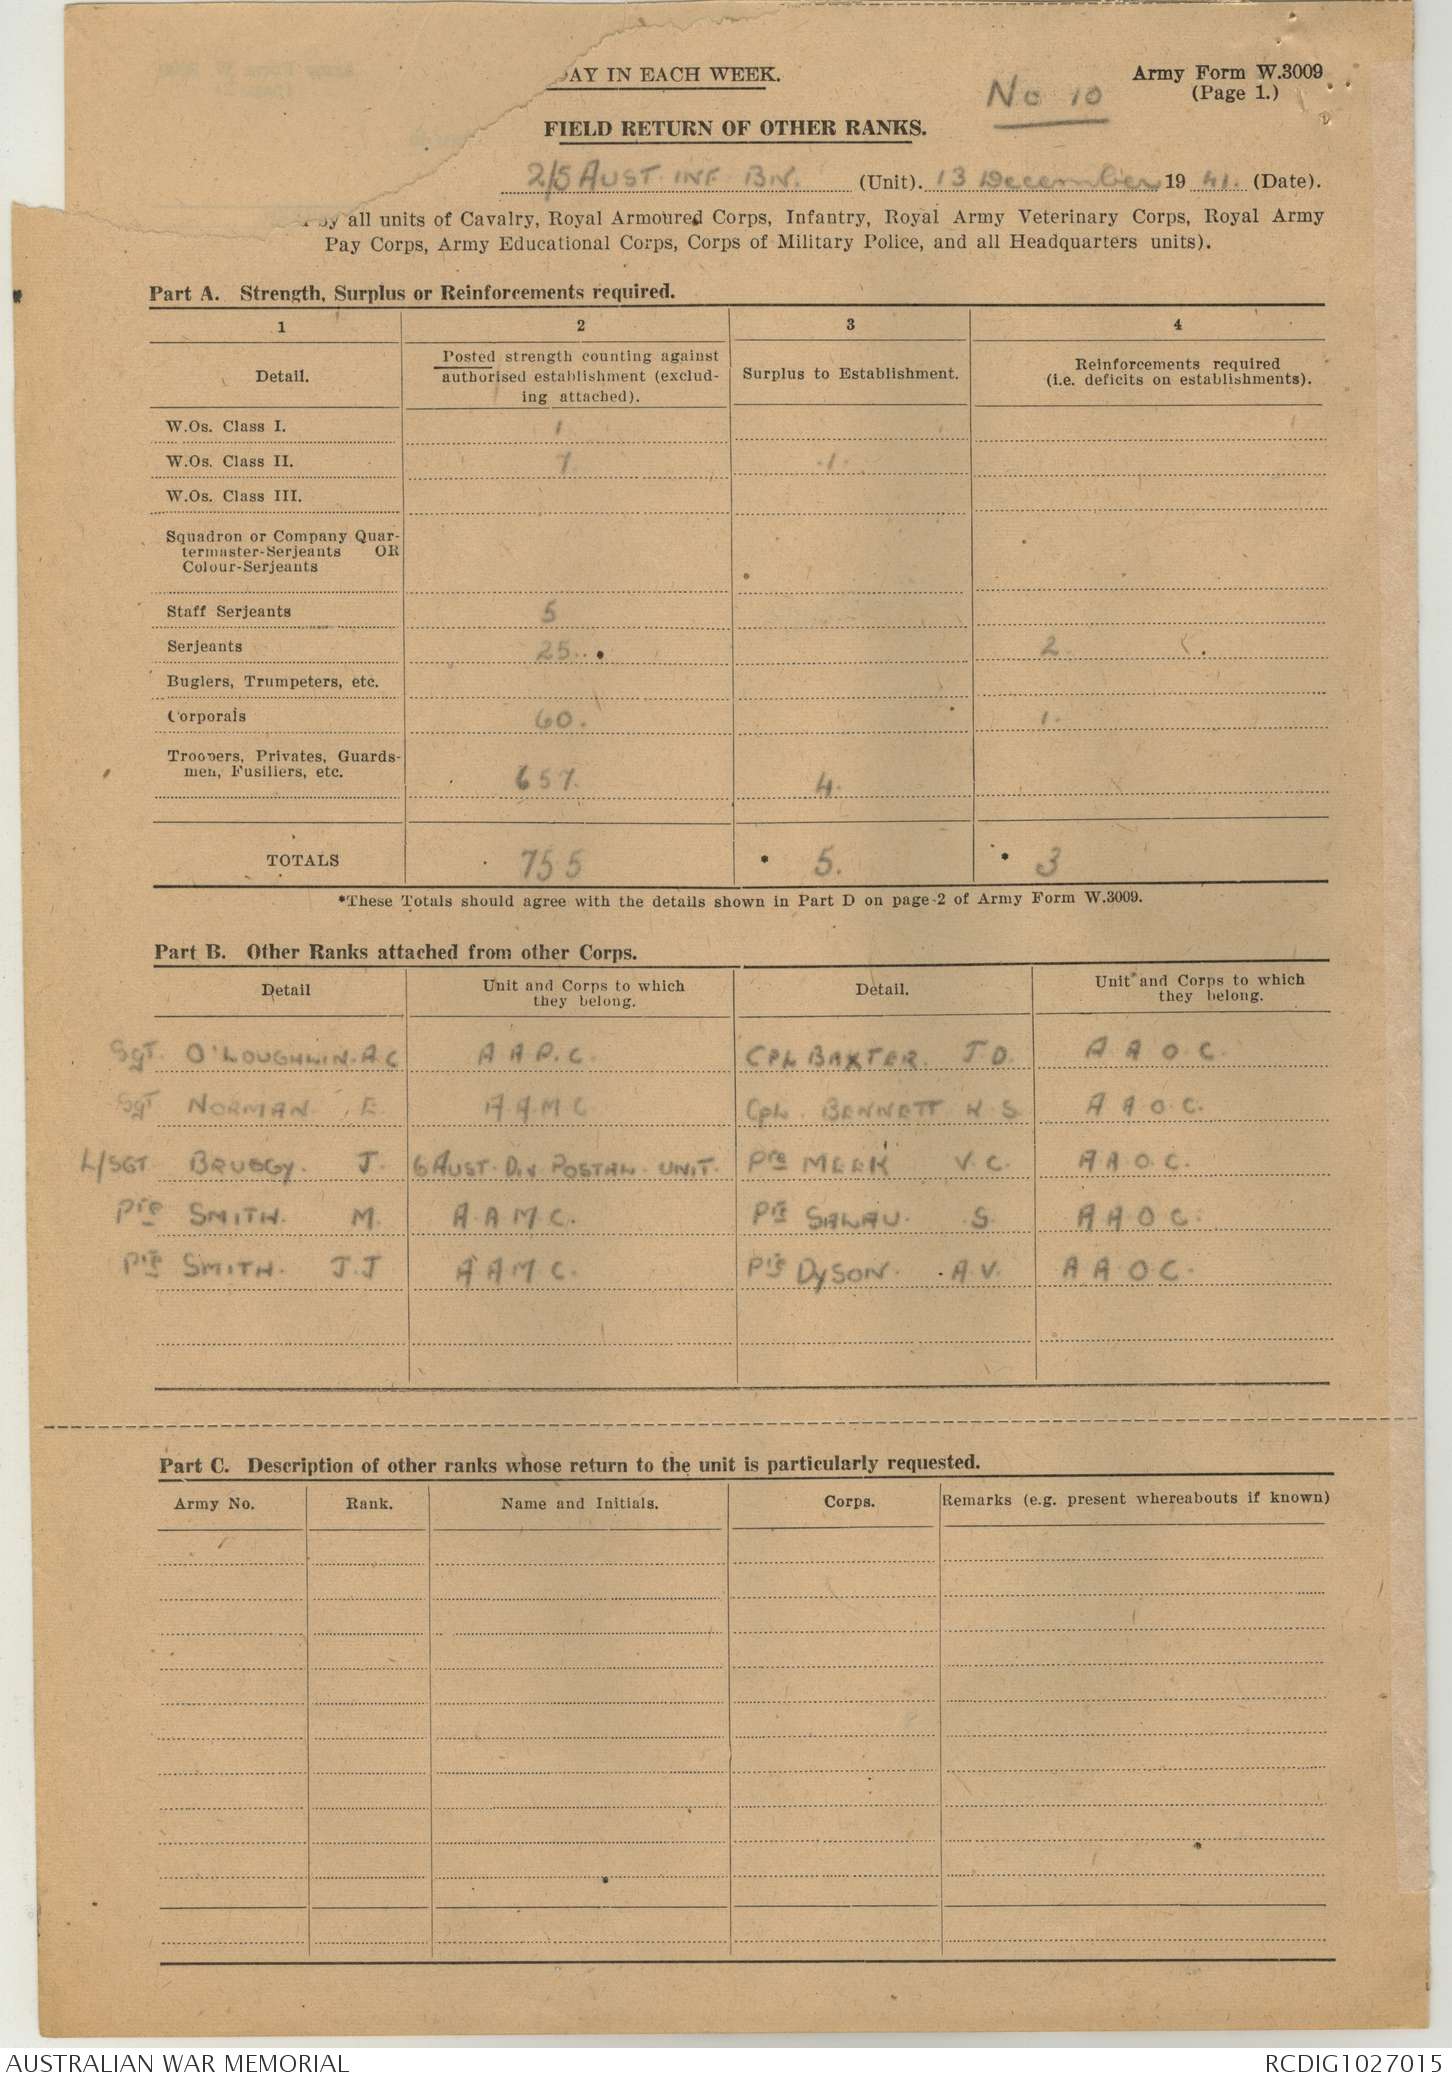 DAY IN EACH WEEK.
Army Form W.3009
(Page 1.)
No 10
FIELD RETURN OF OTHER RANKS.
2/5 AUST. INF. BN. (Unit). 13 December 19 41. (Date).
by all units of Cavalry, Royal Armoured Corps, Infantry, Royal Army Veterinary Corps, Royal Army
Pay Corps, Army Educational Corps, Corps of Military Police, and all Headquarters units).
Part A. Strength, Surplus or Reinforcements required.
1 2 3 4
Detail.
Posted strength counting against
authorised establishment (exclud-
ing attached).
Surplus to Establishment.
Reinforcements required
(i.e. deficits on establishments).
W.Os. Class I. 1
W.Os. Class II. 7. 1.
W.Os. Class III.
Squadron or Company Quar-
termaster-Serjeants OR
Colour-Serjeants
Staff Serjeants 5
Serjeants 25. 2.
Buglers, Trumpeters, etc.
Corporals 60. 1.
Troopers, Privates, Guards-
men, Fusiliers, etc. 657. 4.
TOTALS 755 * 5. * 3
*These Totals should agree with the details shown in Part D on page 2 of Army Form W.3009.
Part B. Other Ranks attached from other Corps.
Detail
Unit and Corps to which
they belong.
Detail.
Unit and Corps to which
they belong.
Sgt. O'LOUGHLIN. A.C A A P. C. CPL BAXTER. J D. A A O C.
Sgt NORMAN. E. A.A.M.C. CPL. BENNETT K.S. A A O.C.
L/SGT BRUGGY. J. 6 AUST. DIV POSTAL. UNIT. Pte MEEK V.C. A A O.C.
Pte SMITH. M. A.A M.C. Pte SALAU. S. A A O C.
Pte SMITH. J.J A A M C. Pte DYSON. A.V. A A O.C.
Part C. Description of other ranks whose return to the unit is particularly requested.
Army No. Rank. Name and Initials. Corps. Remarks (e.g. present whereabouts if known)
AUSTRALIAN WAR MEMORIAL
RCDIG1027015